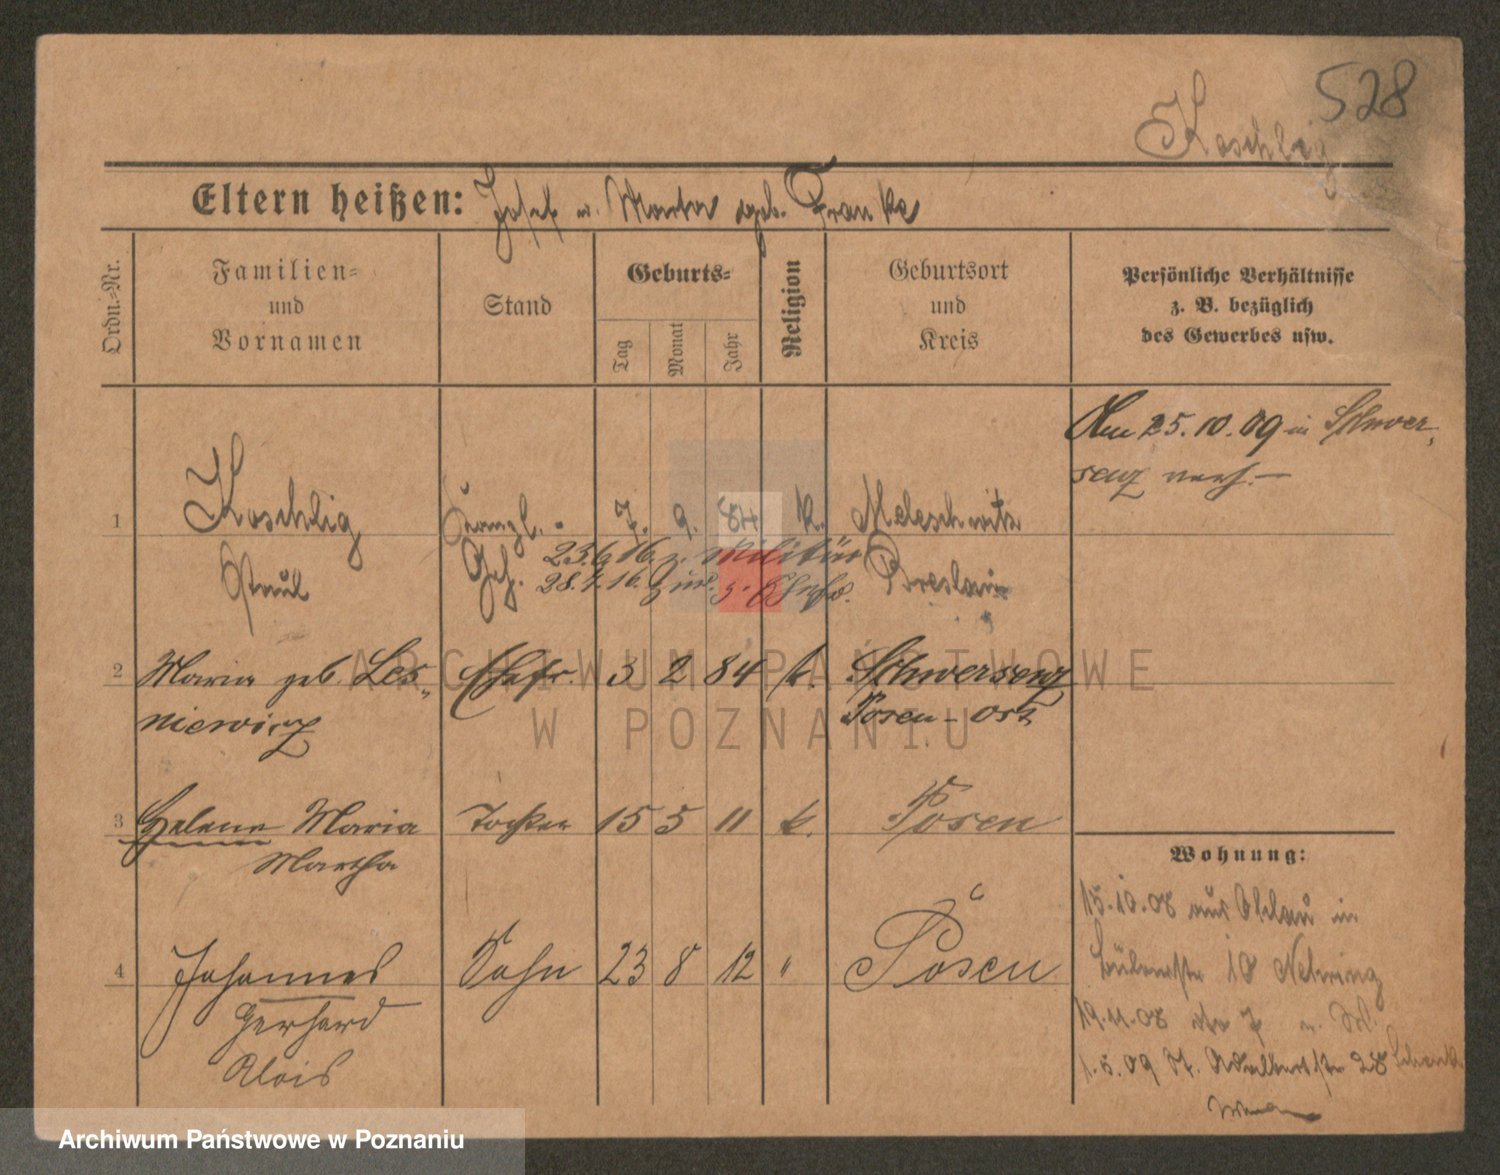 528
Koschlig
Eltern heißen: Josef u. Marta geb. Franke
Ordn.=Nr.
Familien=
und
Vornamen
Stand
Geburts=
Tag
Monat
Jahr
Religion
Geburtsort
und
Kreis
Persönliche Verhältnisse
z. B. bezüglich
des Gewerbes usw.
Am 25.10.09 in Schwer,
senz verh.
1 Koschlig 7. 9. 84 k. Meleschwitz
Paul Geh. Breslau
23.6.16. z. Militär
28.7.16.
2 Maria geb. Les„ Ehefr. 3 2 84 k. Schwersenz
niewicz Posen-Ost
3 Helene Maria Tochter 15 5 11 k. Posen
Martha
4 Johannes Sohn 23 8 12 " Posen
Gerhard
Alois
Wohnung:
15.10.08 aus Ohlau in
18 Nehring
19.11.08
1.5.09 Adalbertstr 28
ARCHIWUM PAŃSTWOWE
W POZNANIU
Archiwum Państwowe w Poznaniu